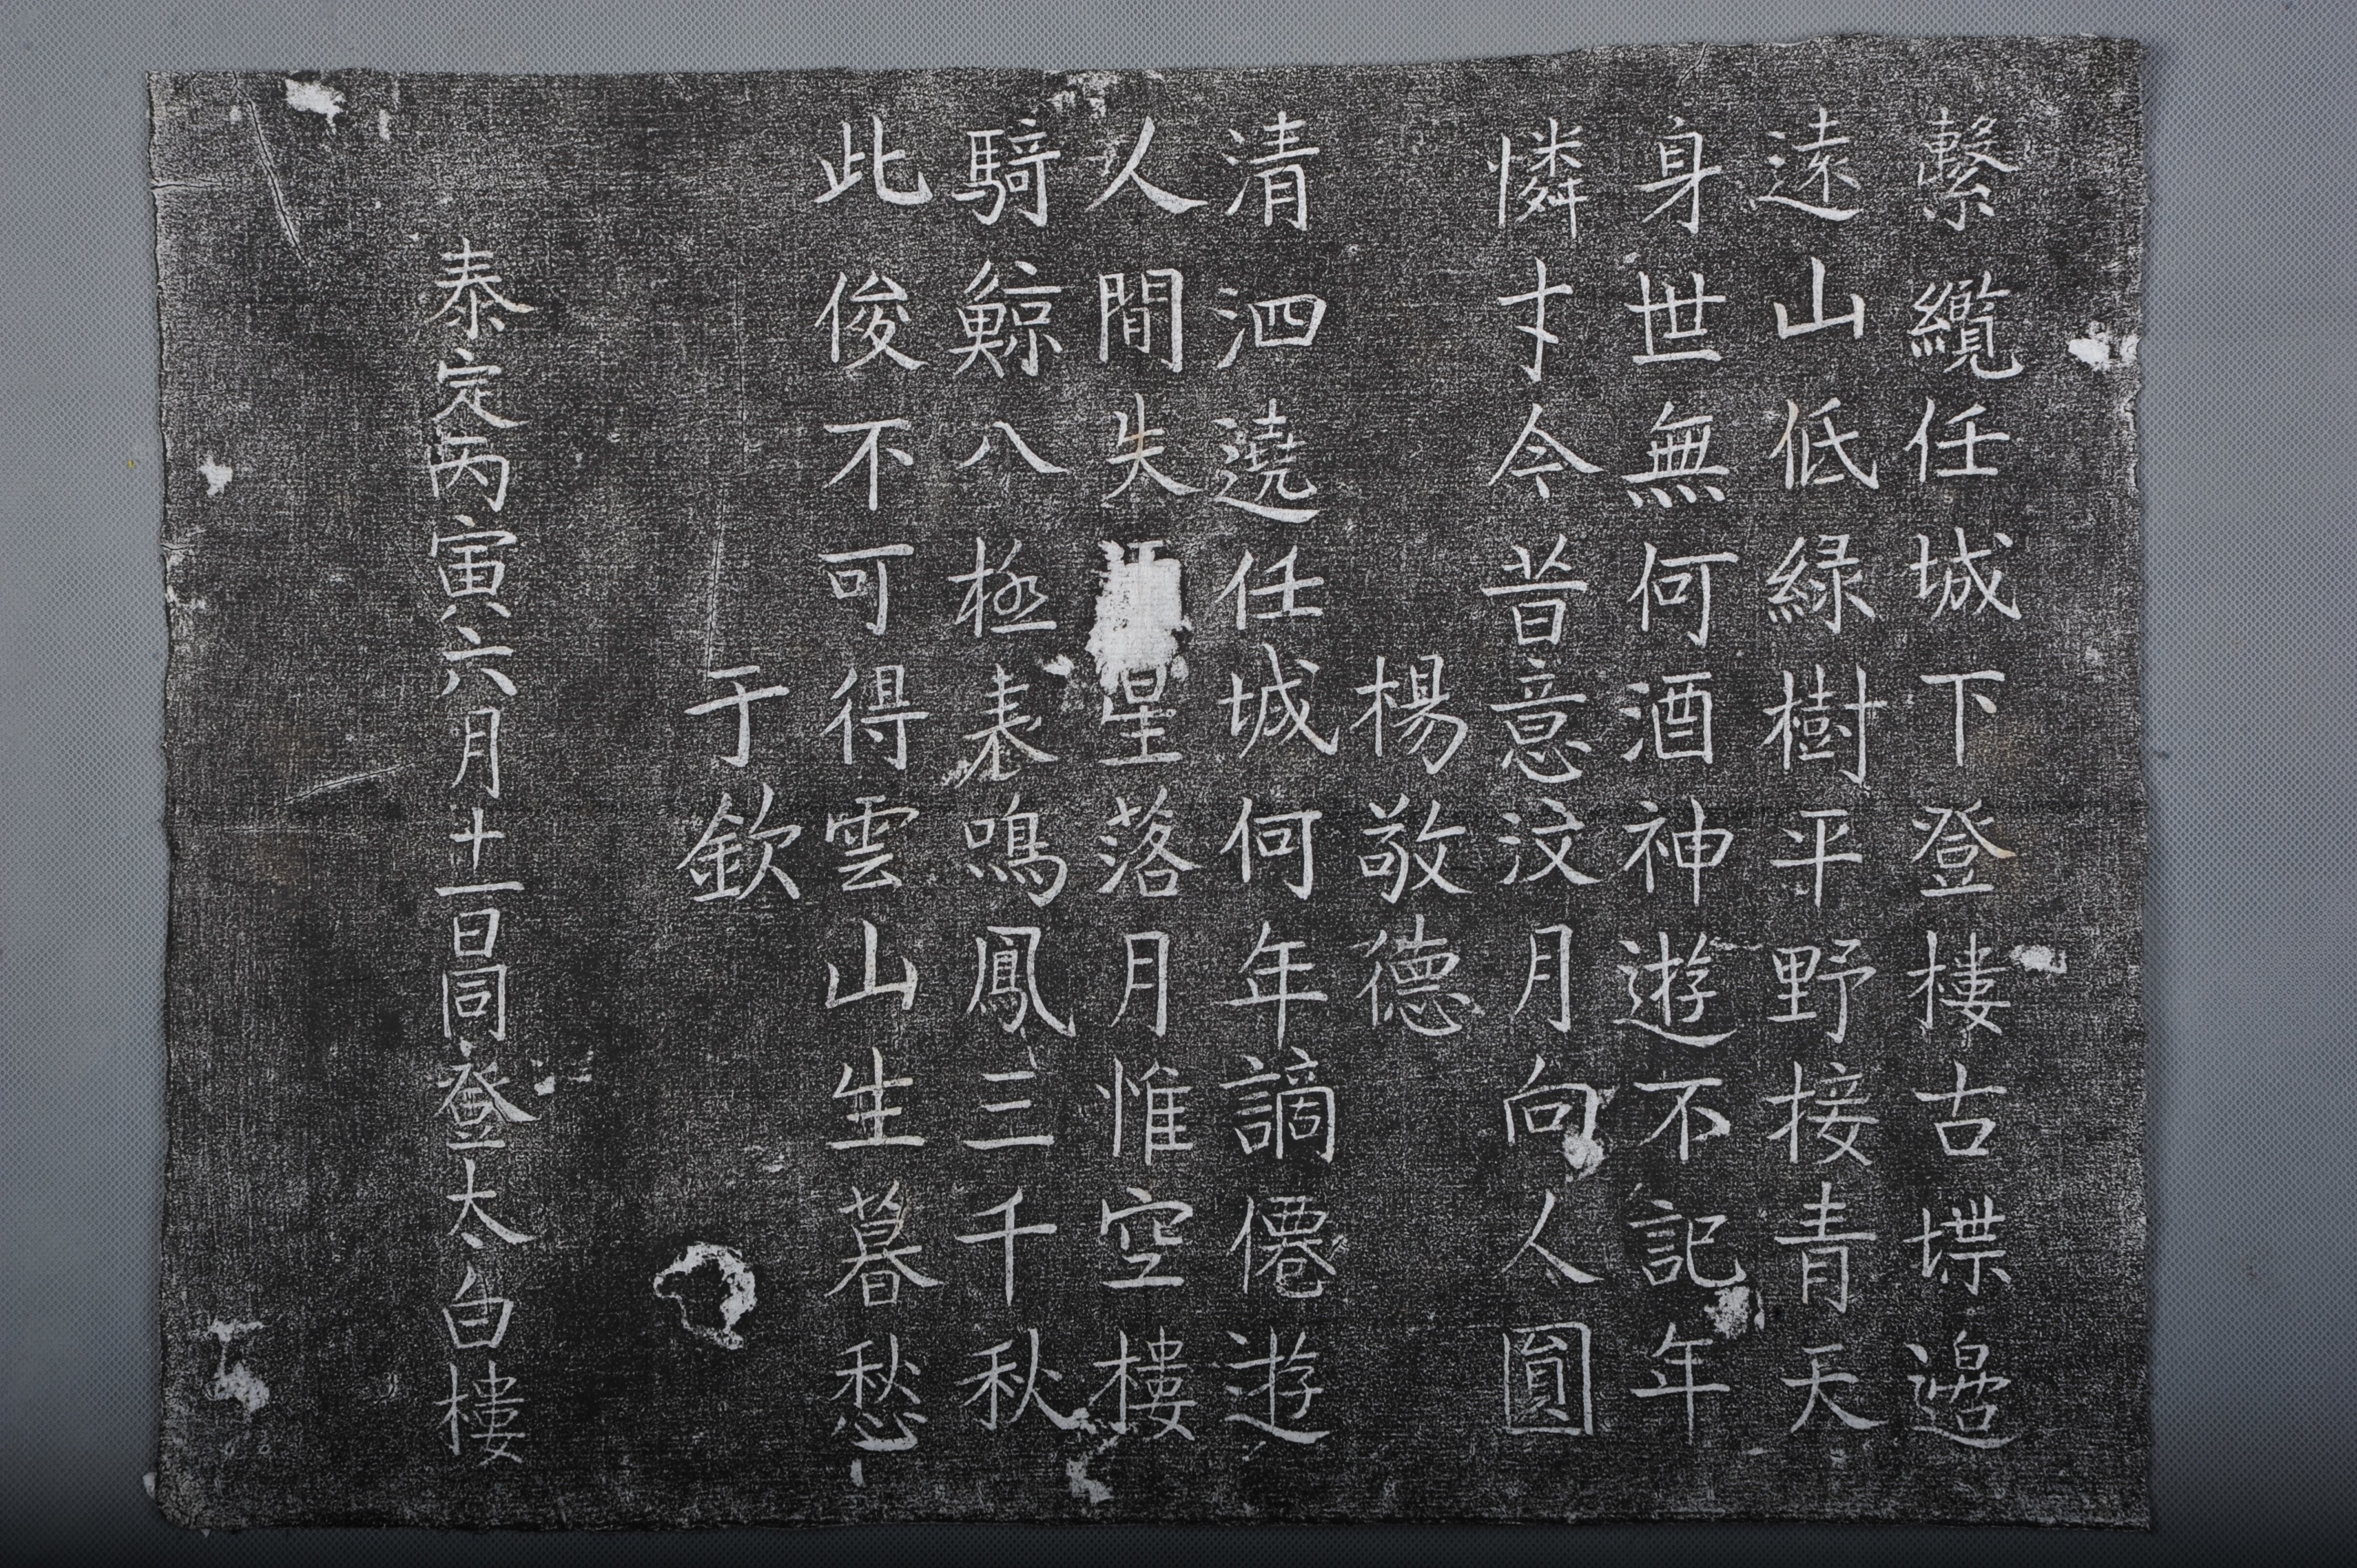 繫纜任城下登樓古堞邉
遠山低緑樹平野接青天
身世無何酒神遊不記年
憐才今昔意汶月向人圓
楊敬德
清泗遶任城何年謫僊遊
人間失星落月惟空樓
騎鯨八極表鳴鳳三千秋
此俊不可得雲山生暮愁
于欽
泰定丙寅六月十一日同登太白樓